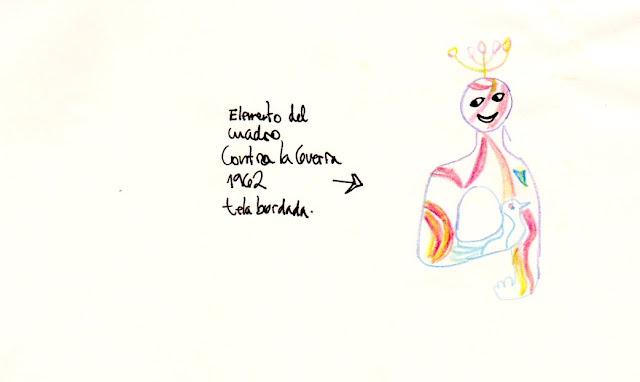 Elemento del
cuadro
Contra la Guerra
1962
tela bordada.